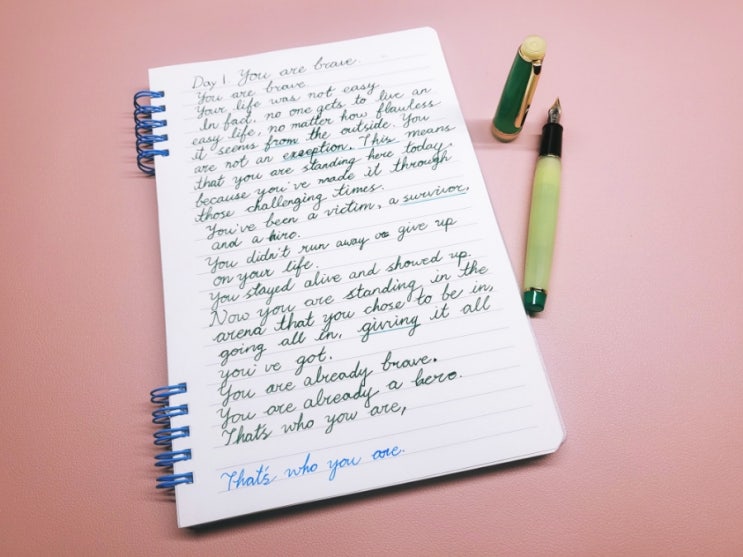 Day 1. You are brave.
You are brave.
Your life was not easy.
In fact, no one gets to live an
easy life, no matter how flawless
it seems from the outside. You
are not an exception. This means
that you are standing here today,
because you've made it through
those challenging times.
You've been a victim, a survivor,
and a hiro.
You didn't run away or give up
on your life.
You stayed alive and showed up.
Now you are standing in the
arena that you chose to be in,
going all in, giving it all
you've got.
You are already brave.
You are already a hero.
That's who you are,
That's who you are.